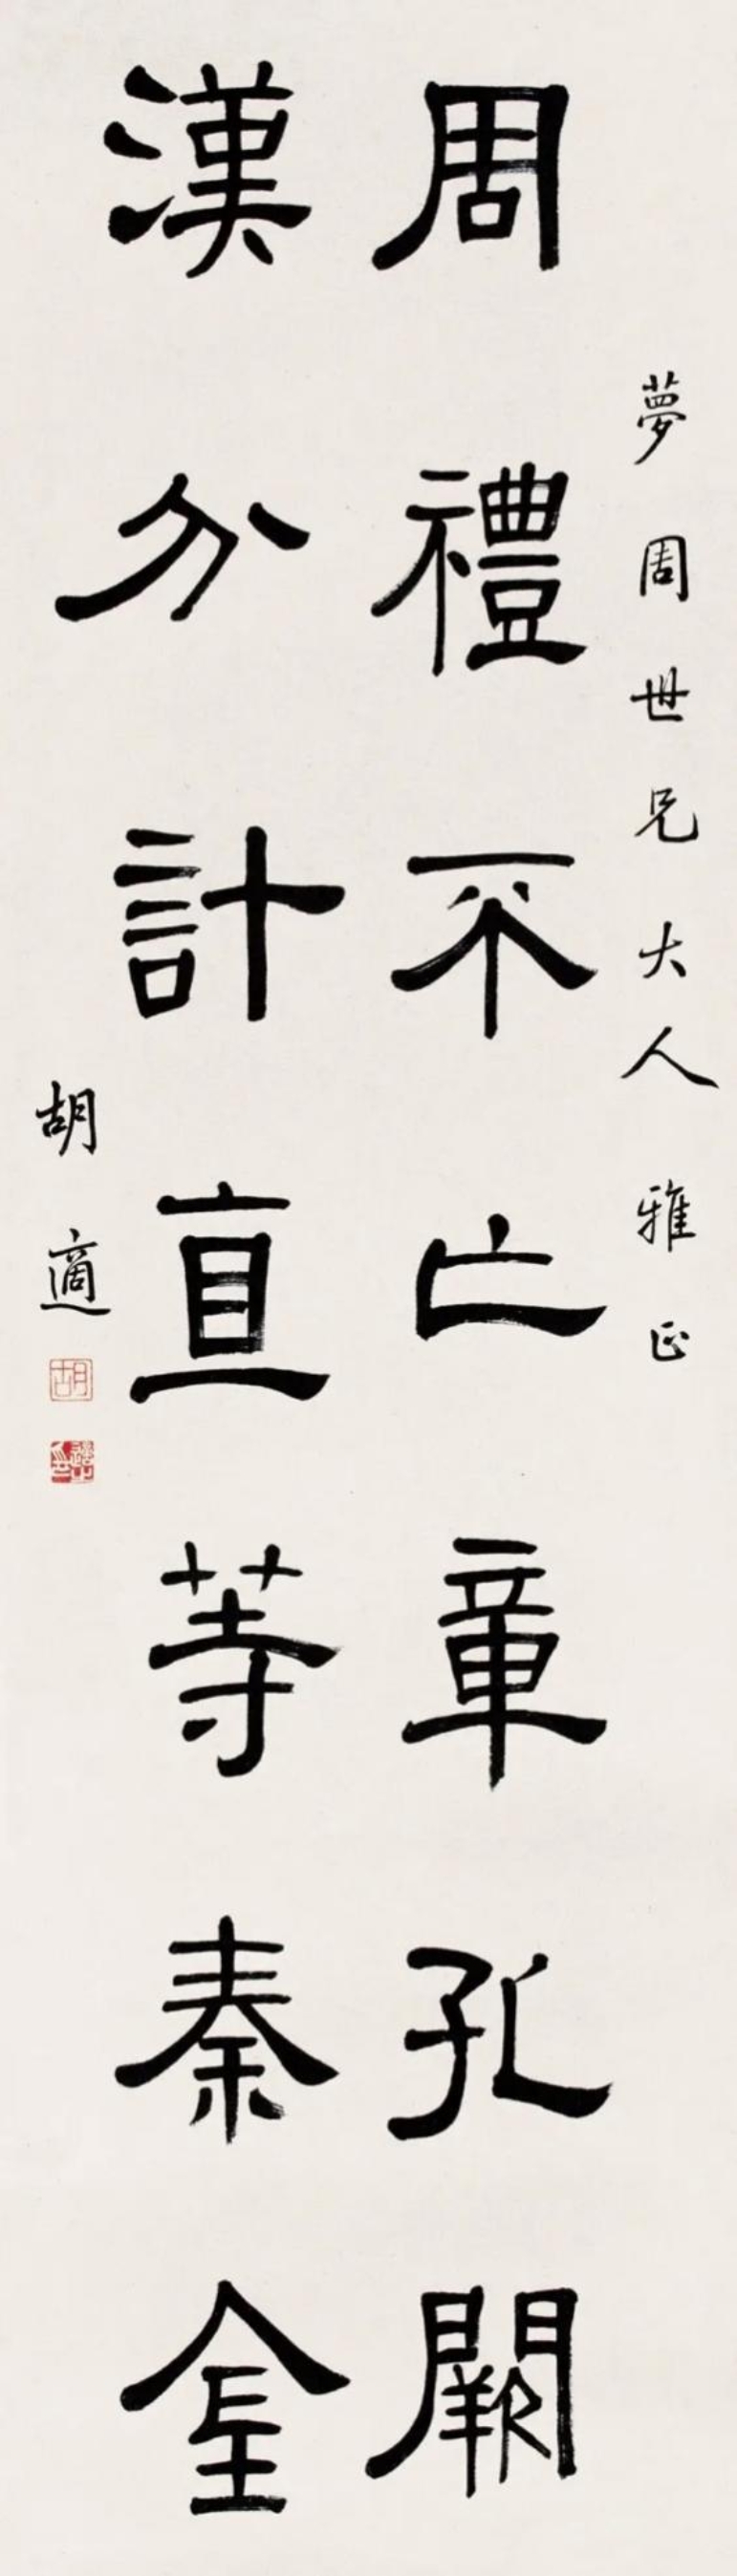 夢周世兄大人雅正
周禮不亡章孔闕
漢分計直等秦金
胡適
胡
適之